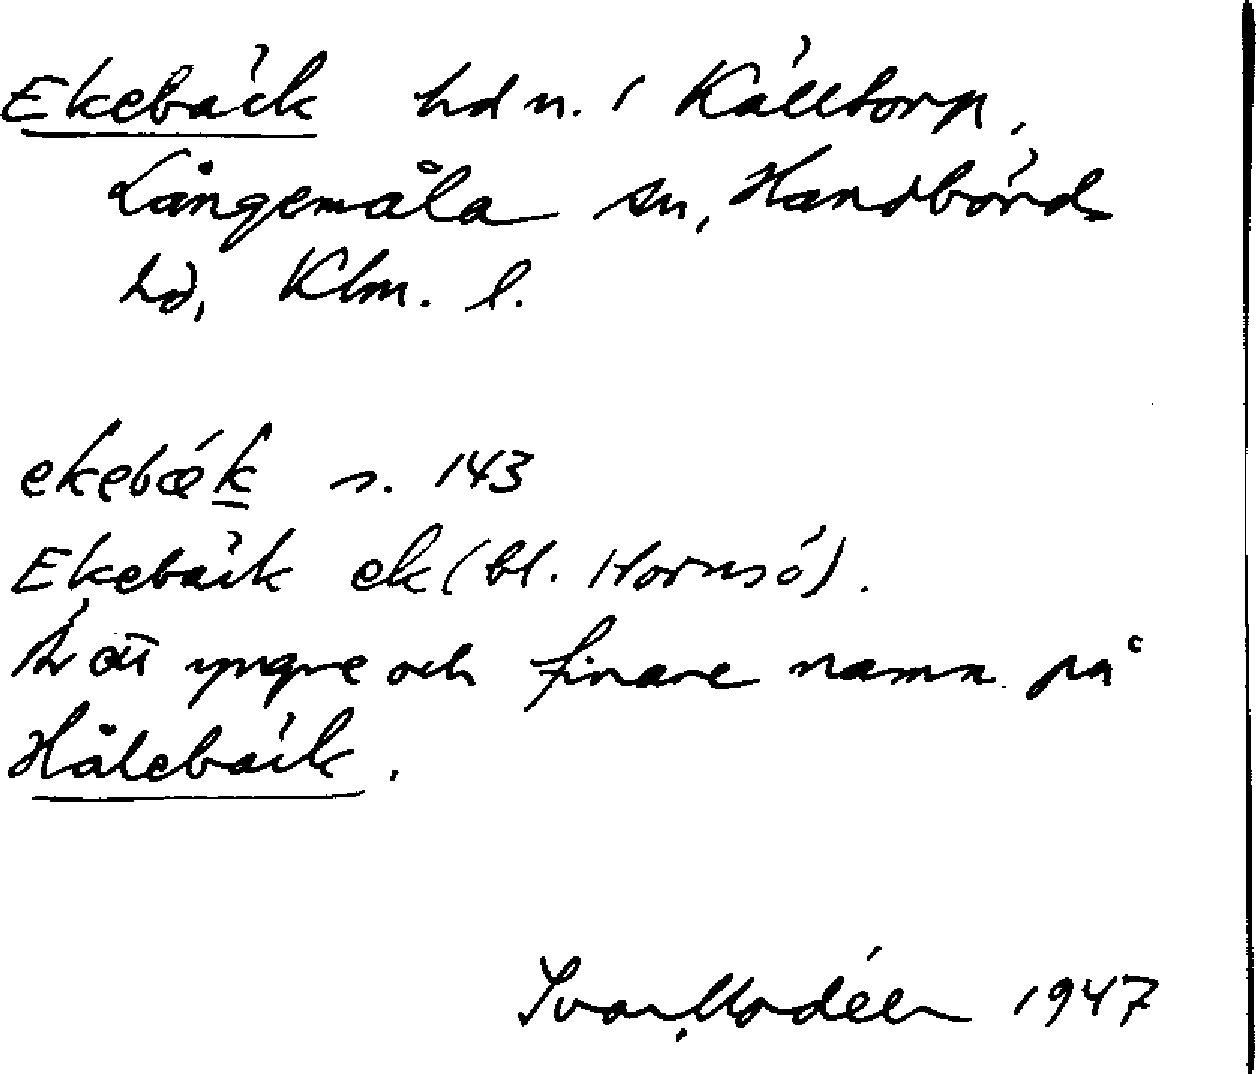 Ekebäck hdn. i Källtorp,
Långemåla sn, Handbörds
hd, Klm. l.
ekebæ´k s. 143
Ekebäck ek (bl. Hornsö).
Är ett yngre och finare namn på
Hålebäck.
Ivar Modéer 1947